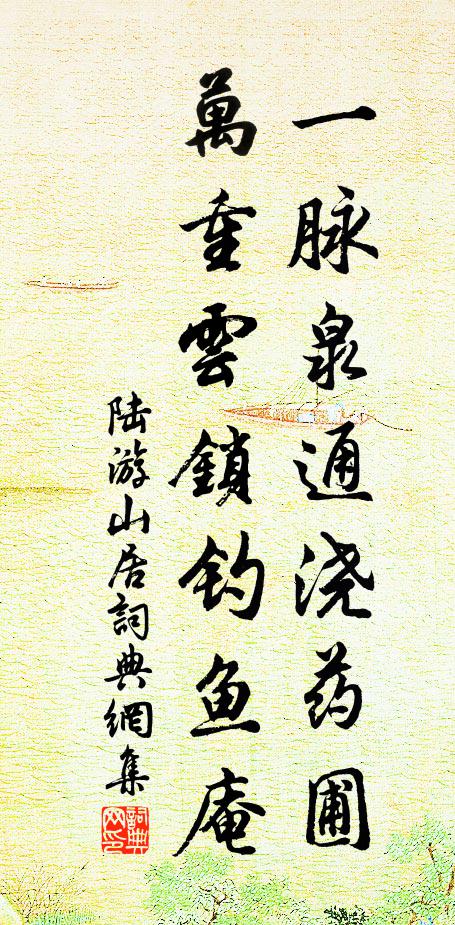 一脉泉通浇药圃
萬重雲鎖钓鱼庵
陆游山居詞典網集
詞典网印